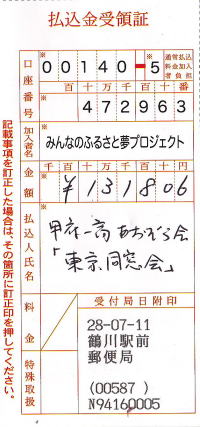 払込金受領証
口座番号 00140-5
通常払込料金加入者負担
百十万千百十番
472963
加入者名 みんなのふるさと夢プロジェクト
千百十万千百十円
金額 ¥131806
払込人氏名
甲府一高あおぞら会
「東京同窓会」
料金
受付局日附印
28-07-11
鶴川駅前
郵便局
(00587)
N94160005
特殊取扱
記載事項を訂正した場合は、その箇所に訂正印を押してください。